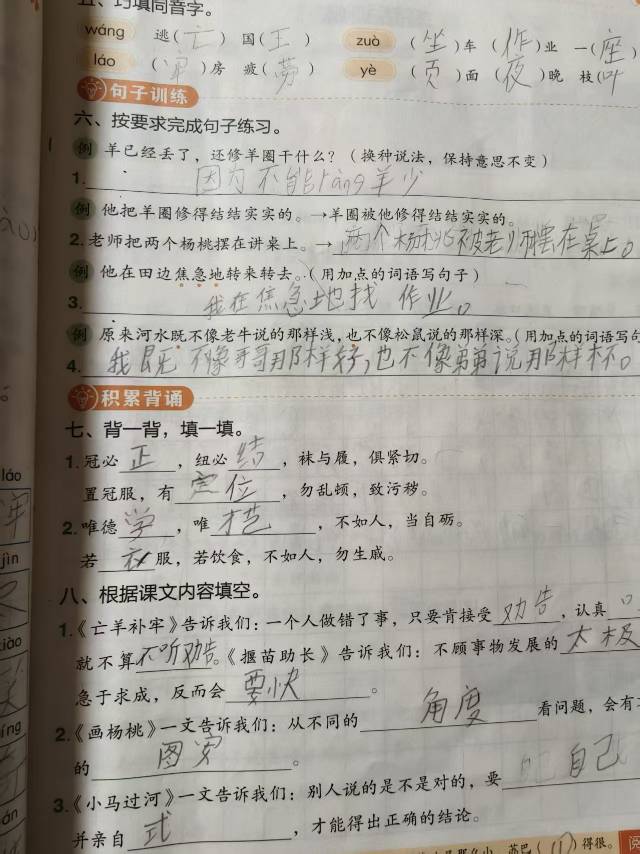 五、巧填同音字。
wáng 逃(亡) 国(王) zuò (坐)车 (作)业 一(座)
láo (牢)房 疲(劳) yè (页)面 (夜)晚 枝(叶
句子训练
六、按要求完成句子练习。
例 羊已经丢了，还修羊圈干什么？（换种说法，保持意思不变）
1. 因为不能ràng羊少
例 他把羊圈修得结结实实的。→羊圈被他修得结结实实的。
2. 老师把两个杨桃摆在讲桌上。→ 两个杨桃被老师摆在桌上。
例 他在田边焦急地转来转去。（用加点的词语写句子）
3. 我在焦急地找作业。
例 原来河水既不像老牛说的那样浅，也不像松鼠说的那样深。（用加点的词语写句
4. 我既不像哥哥那样好，也不像弟弟说那样坏。
积累背诵
七、背一背，填一填。
1. 冠必正，纽必结，袜与履，俱紧切。
置冠服，有定位，勿乱顿，致污秽。
2. 唯德学，唯才艺，不如人，当自砺。
若衣服，若饮食，不如人，勿生戚。
八、根据课文内容填空。
1.《亡羊补牢》告诉我们：一个人做错了事，只要肯接受劝告，认真
就不算不听劝告。《揠苗助长》告诉我们：不顾事物发展的太极
急于求成，反而会要小快。
2.《画杨桃》一文告诉我们：从不同的角度看问题，会有
的图案。
3.《小马过河》一文告诉我们：别人说的是不是对的，要自己
并亲自试，才能得出正确的结论。
láo
jìn